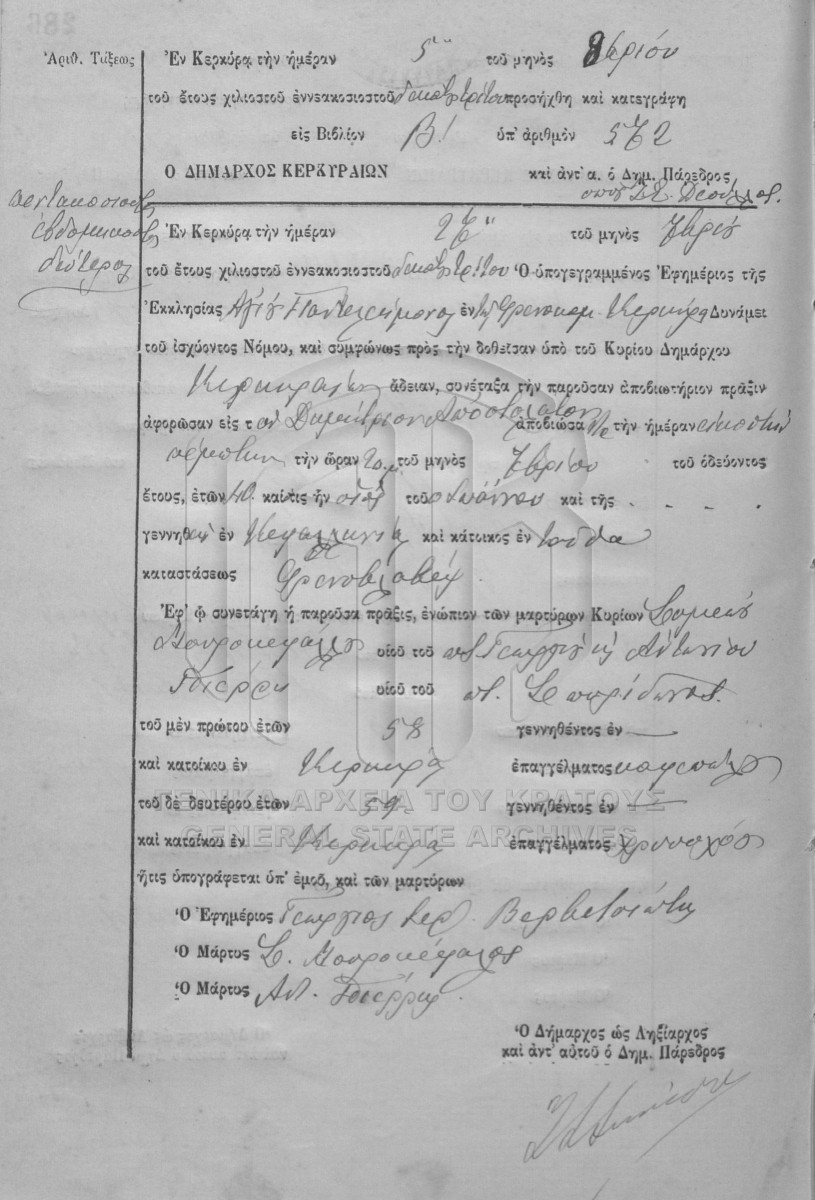 Ἀριθ. Τάξεως
Ἐν Κερκύρᾳ τὴν ἡμέραν 5 τοῦ μηνὸς 8βρίου
τοῦ ἔτους χιλιοστοῦ ἐννεακοσιοστοῦ δεκάτου τρίτου προσήχθη καὶ κατεγράφη
εἰς Βιβλίον Β! ὑπ' ἀριθμὸν 572
Ο ΔΗΜΑΡΧΟΣ ΚΕΡΚΥΡΑΙΩΝ καὶ ἀντ' α. ὁ Δημ. Πάρεδρος
πεντακοσιοστὸς
ἑβδομηκοστὸς
δεύτερος
Ἐν Κερκύρᾳ τὴν ἡμέραν 27 τοῦ μηνὸς 7βρίου
τοῦ ἔτους χιλιοστοῦ ἐννεακοσιοστοῦ δεκάτου τρίτου Ὁ ὑπογεγραμμένος Ἐφημέριος τῆς
Ἐκκλησίας Ἁγίου Παντελεήμονος ἐν τῷ Φρενοκομ. Κερκύρας Δυνάμει
τοῦ ἰσχύοντος Νόμου, καὶ συμφώνως πρὸς τὴν δοθεῖσαν ὑπὸ τοῦ Κυρίου Δημάρχου
Κερκυραίων ἄδειαν, συνέταξα τὴν παροῦσαν ἀποβιωτήριον πρᾶξιν
ἀφορῶσαν εἰς τὸν Δημήτριον Ἀποστολάτον ἀποβιώσαντα τὴν ἡμέραν εἰκοστὴν
πέμπτην τὴν ὥραν τοῦ μηνὸς 7βρίου τοῦ ὁδεύοντος
ἔτους, ἐτῶν 40 καὶ τις ἦν υἱὸς τοῦ Σπύρου καὶ τῆς . - . .
γεννηθεὶς ἐν Κεφαλληνίᾳ καὶ κάτοικος ἐν
καταστάσεως Φρενοβλαβὴς
Ἐφ' ᾧ συνετάγη ἡ παροῦσα πρᾶξις, ἐνώπιον τῶν μαρτύρων Κυρίων
Μουροκέφαλος υἱοῦ τοῦ ποτ. Γεωργίου κ Ἀντωνίου
Πιέρρη υἱοῦ τοῦ π. Σπυρίδωνος.
τοῦ μὲν πρώτου ἐτῶν 58 γεννηθέντος ἐν —
καὶ κατοίκου ἐν Κερκύρᾳ ἐπαγγέλματος καφεπώλης
τοῦ δὲ δευτέρου ἐτῶν 59 γεννηθέντος ἐν —
καὶ κατοίκου ἐν Κερκύρᾳ ἐπαγγέλματος χρυσοχόος
ἥτις ὑπογράφεται ὑπ' ἐμοῦ, καὶ τῶν μαρτύρων
Ὁ Ἐφημέριος Γεώργιος Ἱερ. Βερβιτσιώτης
Ὁ Μάρτυς Σ. Μουροκέφαλος
Ὁ Μάρτυς Ἀντ. Πιέρρης
Ὁ Δήμαρχος ὡς Ληξίαρχος
καὶ ἀντ' αὐτοῦ ὁ Δημ. Πάρεδρος
ΓΕΝΙΚΑ ΑΡΧΕΙΑ ΤΟΥ ΚΡΑΤΟΥΣ
GENERAL STATE ARCHIVES